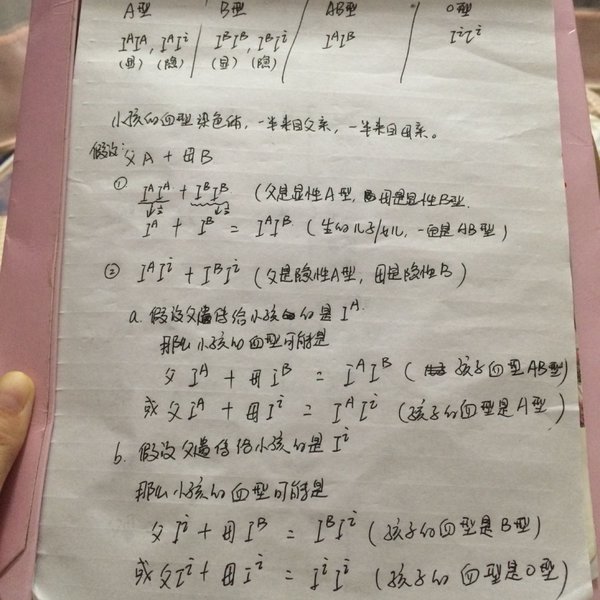 A型 B型 AB型 O型
IᴬIᴬ, IᴬIⁱ / IᴮIᴮ, IᴮIⁱ / IᴬIᴮ / IⁱIⁱ
(显) (隐) (显) (隐)
小孩的血型染色体,一半来自父系,一半来自母系。
假设:父A + 母B
① IᴬIᴬ + IᴮIᴮ (父是显性A型, 母是显性B型
Iᴬ + Iᴮ = IᴬIᴮ (生的儿子/女儿,一定是AB型)
② IᴬIⁱ + IᴮIⁱ (父是隐性A型,母是隐性B)
a. 假设父遗传给小孩的是Iᴬ.
那么小孩的血型可能是
父Iᴬ + 母Iᴮ = IᴬIᴮ (孩子血型AB型)
或父Iᴬ + 母Iⁱ = IᴬIⁱ (孩子的血型是A型)
b. 假设父遗传给小孩的是Iⁱ
那么小孩的血型可能是
父Iⁱ + 母Iᴮ = IᴮIⁱ (孩子的血型是B型)
或父Iⁱ + 母Iⁱ = IⁱIⁱ (孩子的血型是O型)